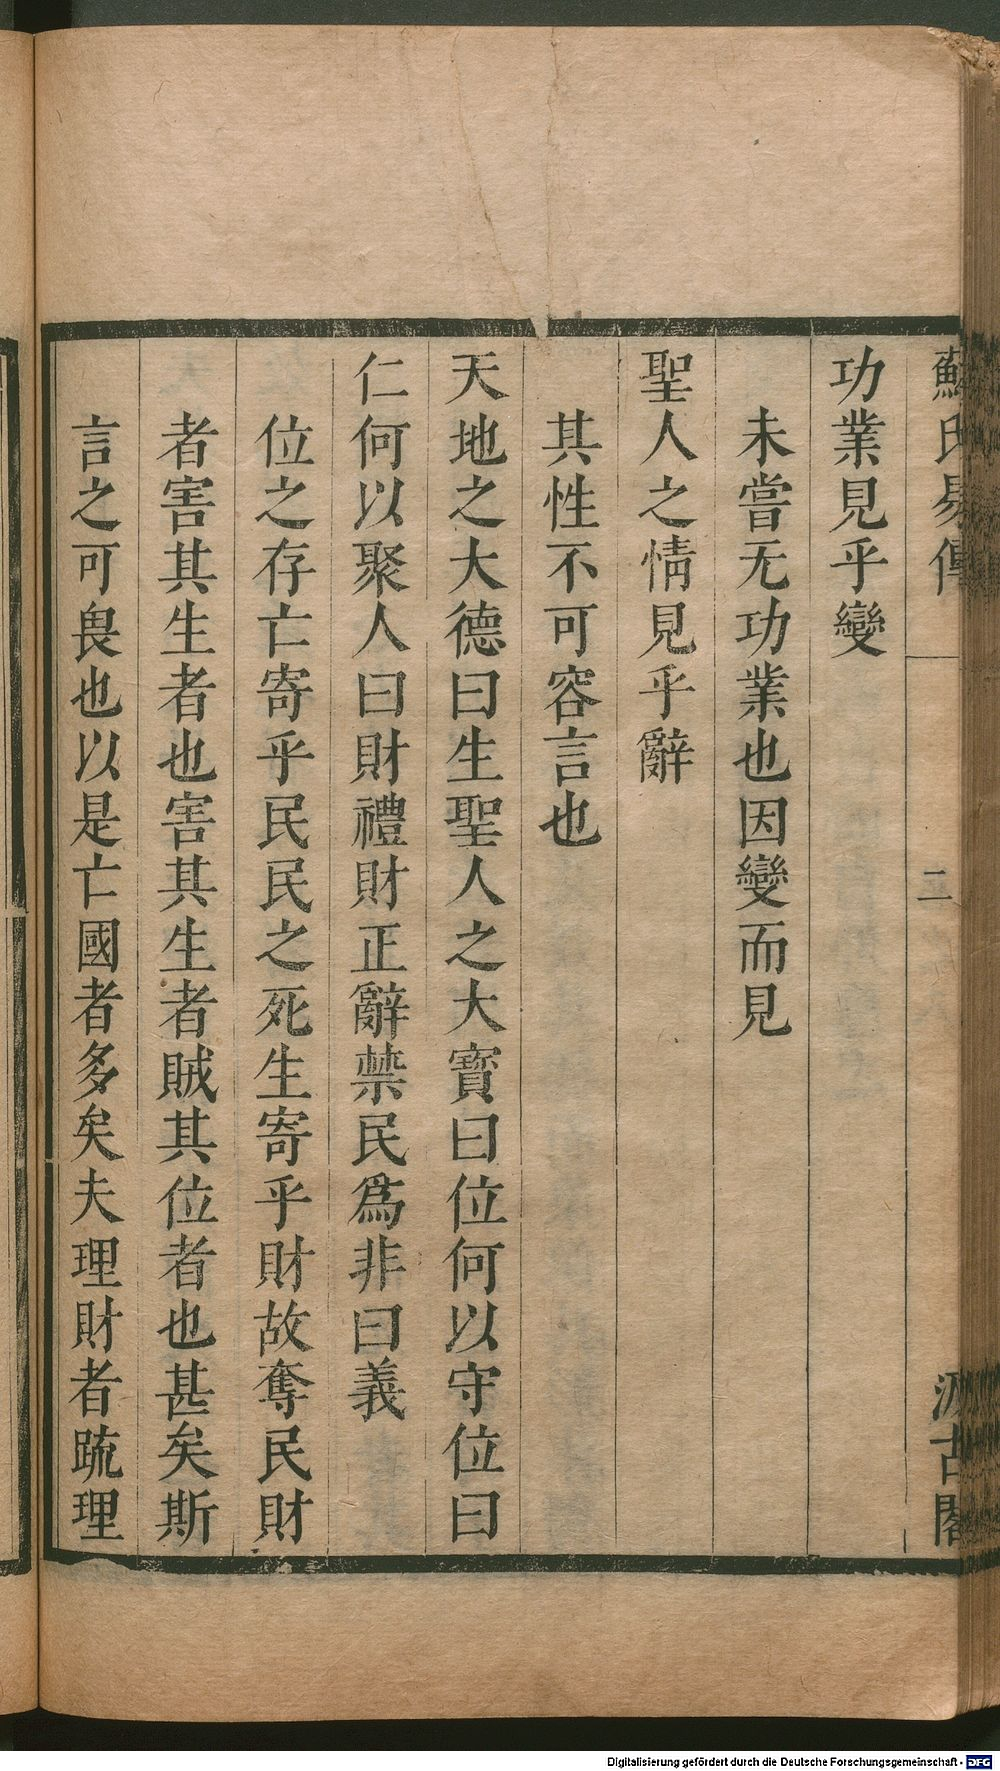 蘇氏易傳
二
汲古閣
功業見乎變
未嘗无功業也因變而見
聖人之情見乎辭
其性不可容言也
天地之大德曰生聖人之大寶曰位何以守位曰
仁何以聚人曰財禮財正辭禁民爲非曰義
位之存亡寄乎民民之死生寄乎財故奪民財
者害其生者也害其生者賊其位者也甚矣斯
言之可畏也以是亡國者多矣夫理財者疏理
Digitalisierung gefördert durch die Deutsche Forschungsgemeinschaft - DFG